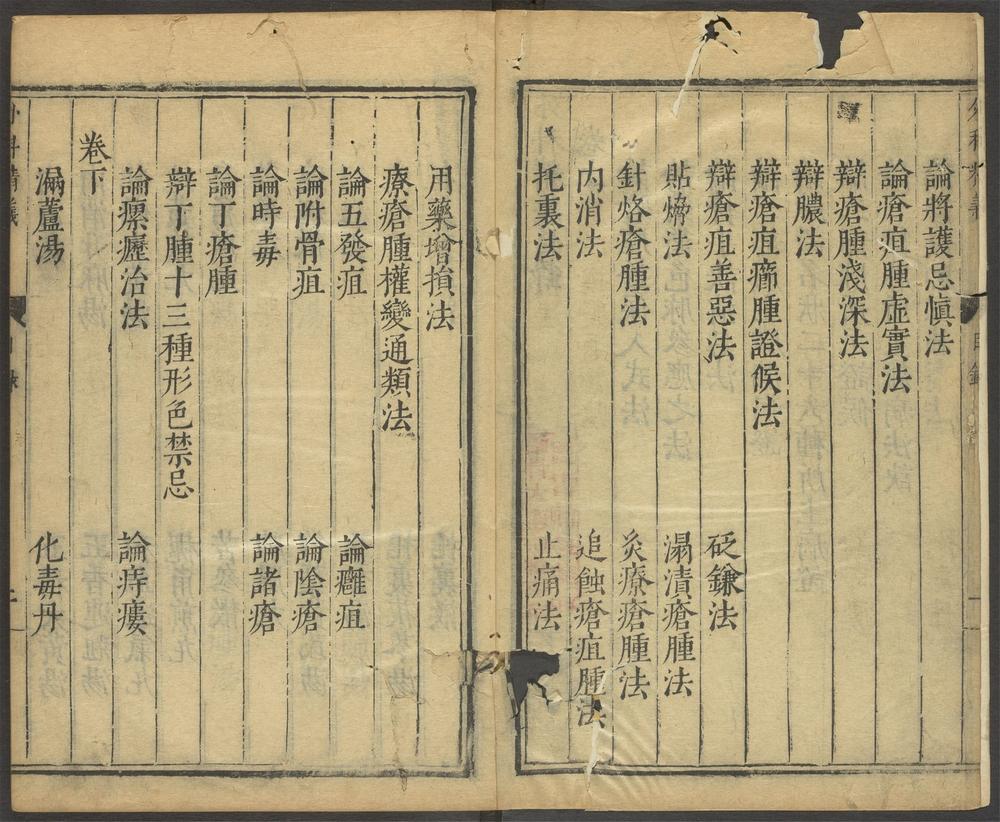 論將護忌愼法
論瘡疽腫虛實法
辯瘡腫淺深法
辯膿法
辯瘡疽癤腫證候法
辯瘡疽善惡法 砭鎌法
貼熁法 溻漬瘡腫法
針烙瘡腫法 灸療瘡腫法
内消法 追蝕瘡疽腫法
托裏法 止痛法
用藥增損法
療瘡腫權變通類法
論五發疽 論癰疽
論附骨疽 論陰瘡
論時毒 論諸瘡
論丁瘡腫
辯丁腫十三種形色禁忌
論瘰癧治法 論痔瘻
卷下
漏蘆湯 化毒丹